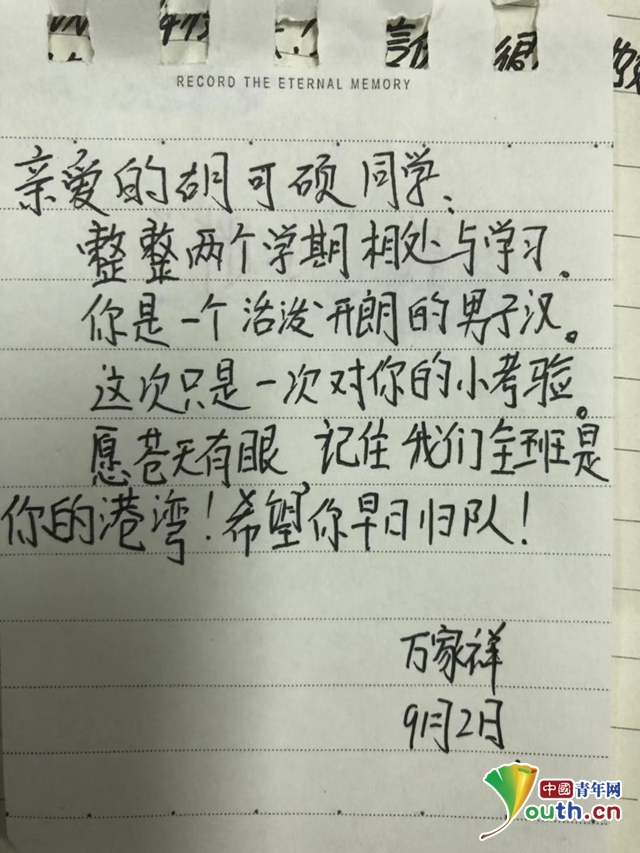 RECORD THE ETERNAL MEMORY
亲爱的胡可硕同学、
整整两个学期相处与学习。
你是一个活泼开朗的男子汉。
这次只是一次对你的小考验。
愿苍天有眼 记住我们全班是
你的港湾！希望你早日归队！
万家祥
9月2日
中國青年网
Youth.cn